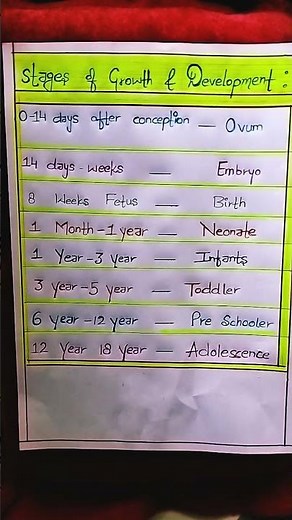 Stages of Growth & Development :
0-14 days after conception — Ovum
14 days - weeks — Embryo
8 Weeks Fetus — Birth
1 Month - 1 year — Neonate
1 Year - 3 Year — Infants
3 year - 5 year — Toddler
6 year - 12 year — Pre Schooler
12 Year 18 Year — Adolescence